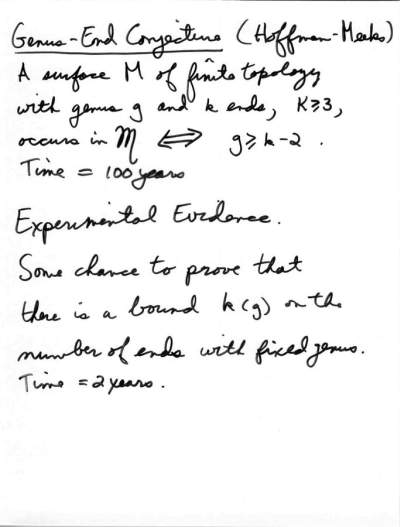 Genus-End Conjecture (Hoffman-Meeks)
A surface M of finite topology
with genus g and k ends, K≥3,
occurs in M ⟺ g≥k-2.
Time = 100 years
Experimental Evidence.
Some chance to prove that
there is a bound k(g) on the
number of ends with fixed genus.
Time = 2 years.